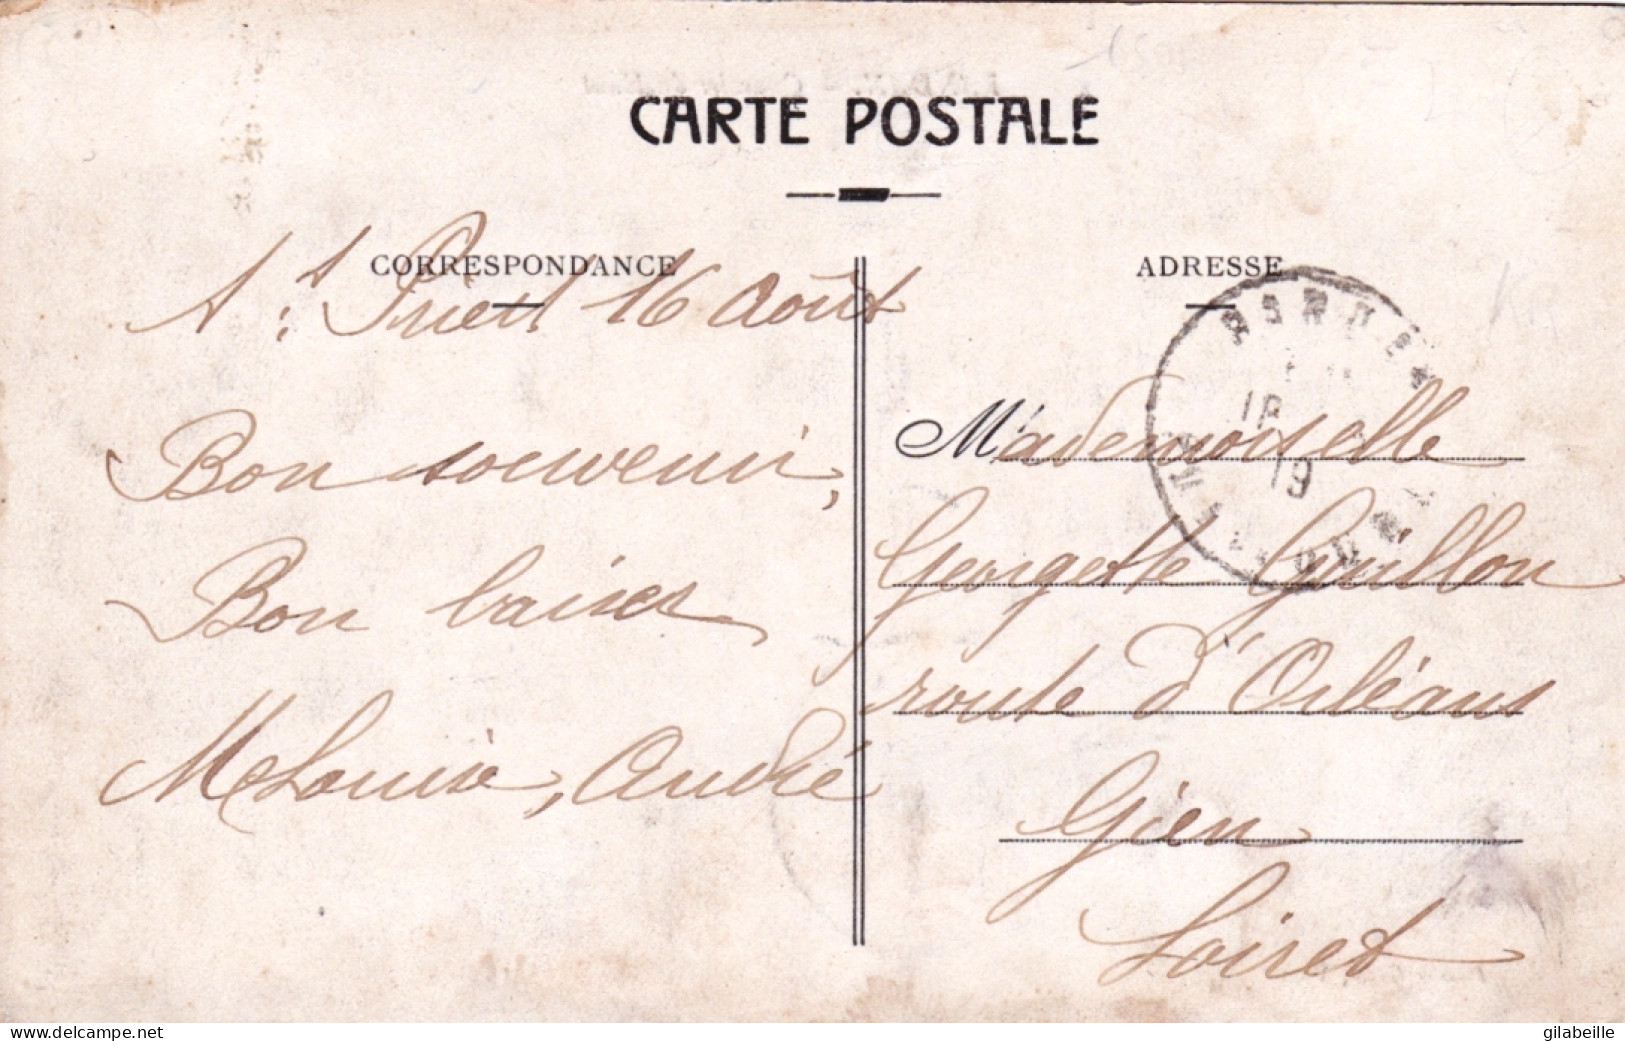 CARTE POSTALE
CORRESPONDANCE
ADRESSE
St Priest 16 Août
Bon souvenir,
Bon baiser
M Louise, André
Mademoiselle
Georgette Guillon
route d'Orléans
Gien
Loiret
18
19
www.delcampe.net
gilabeille